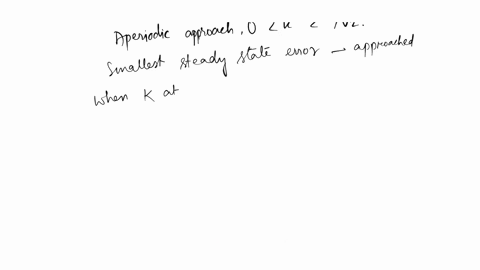 Aperiodic approach, 0 < K <
Smallest steady state error → approached
when K at